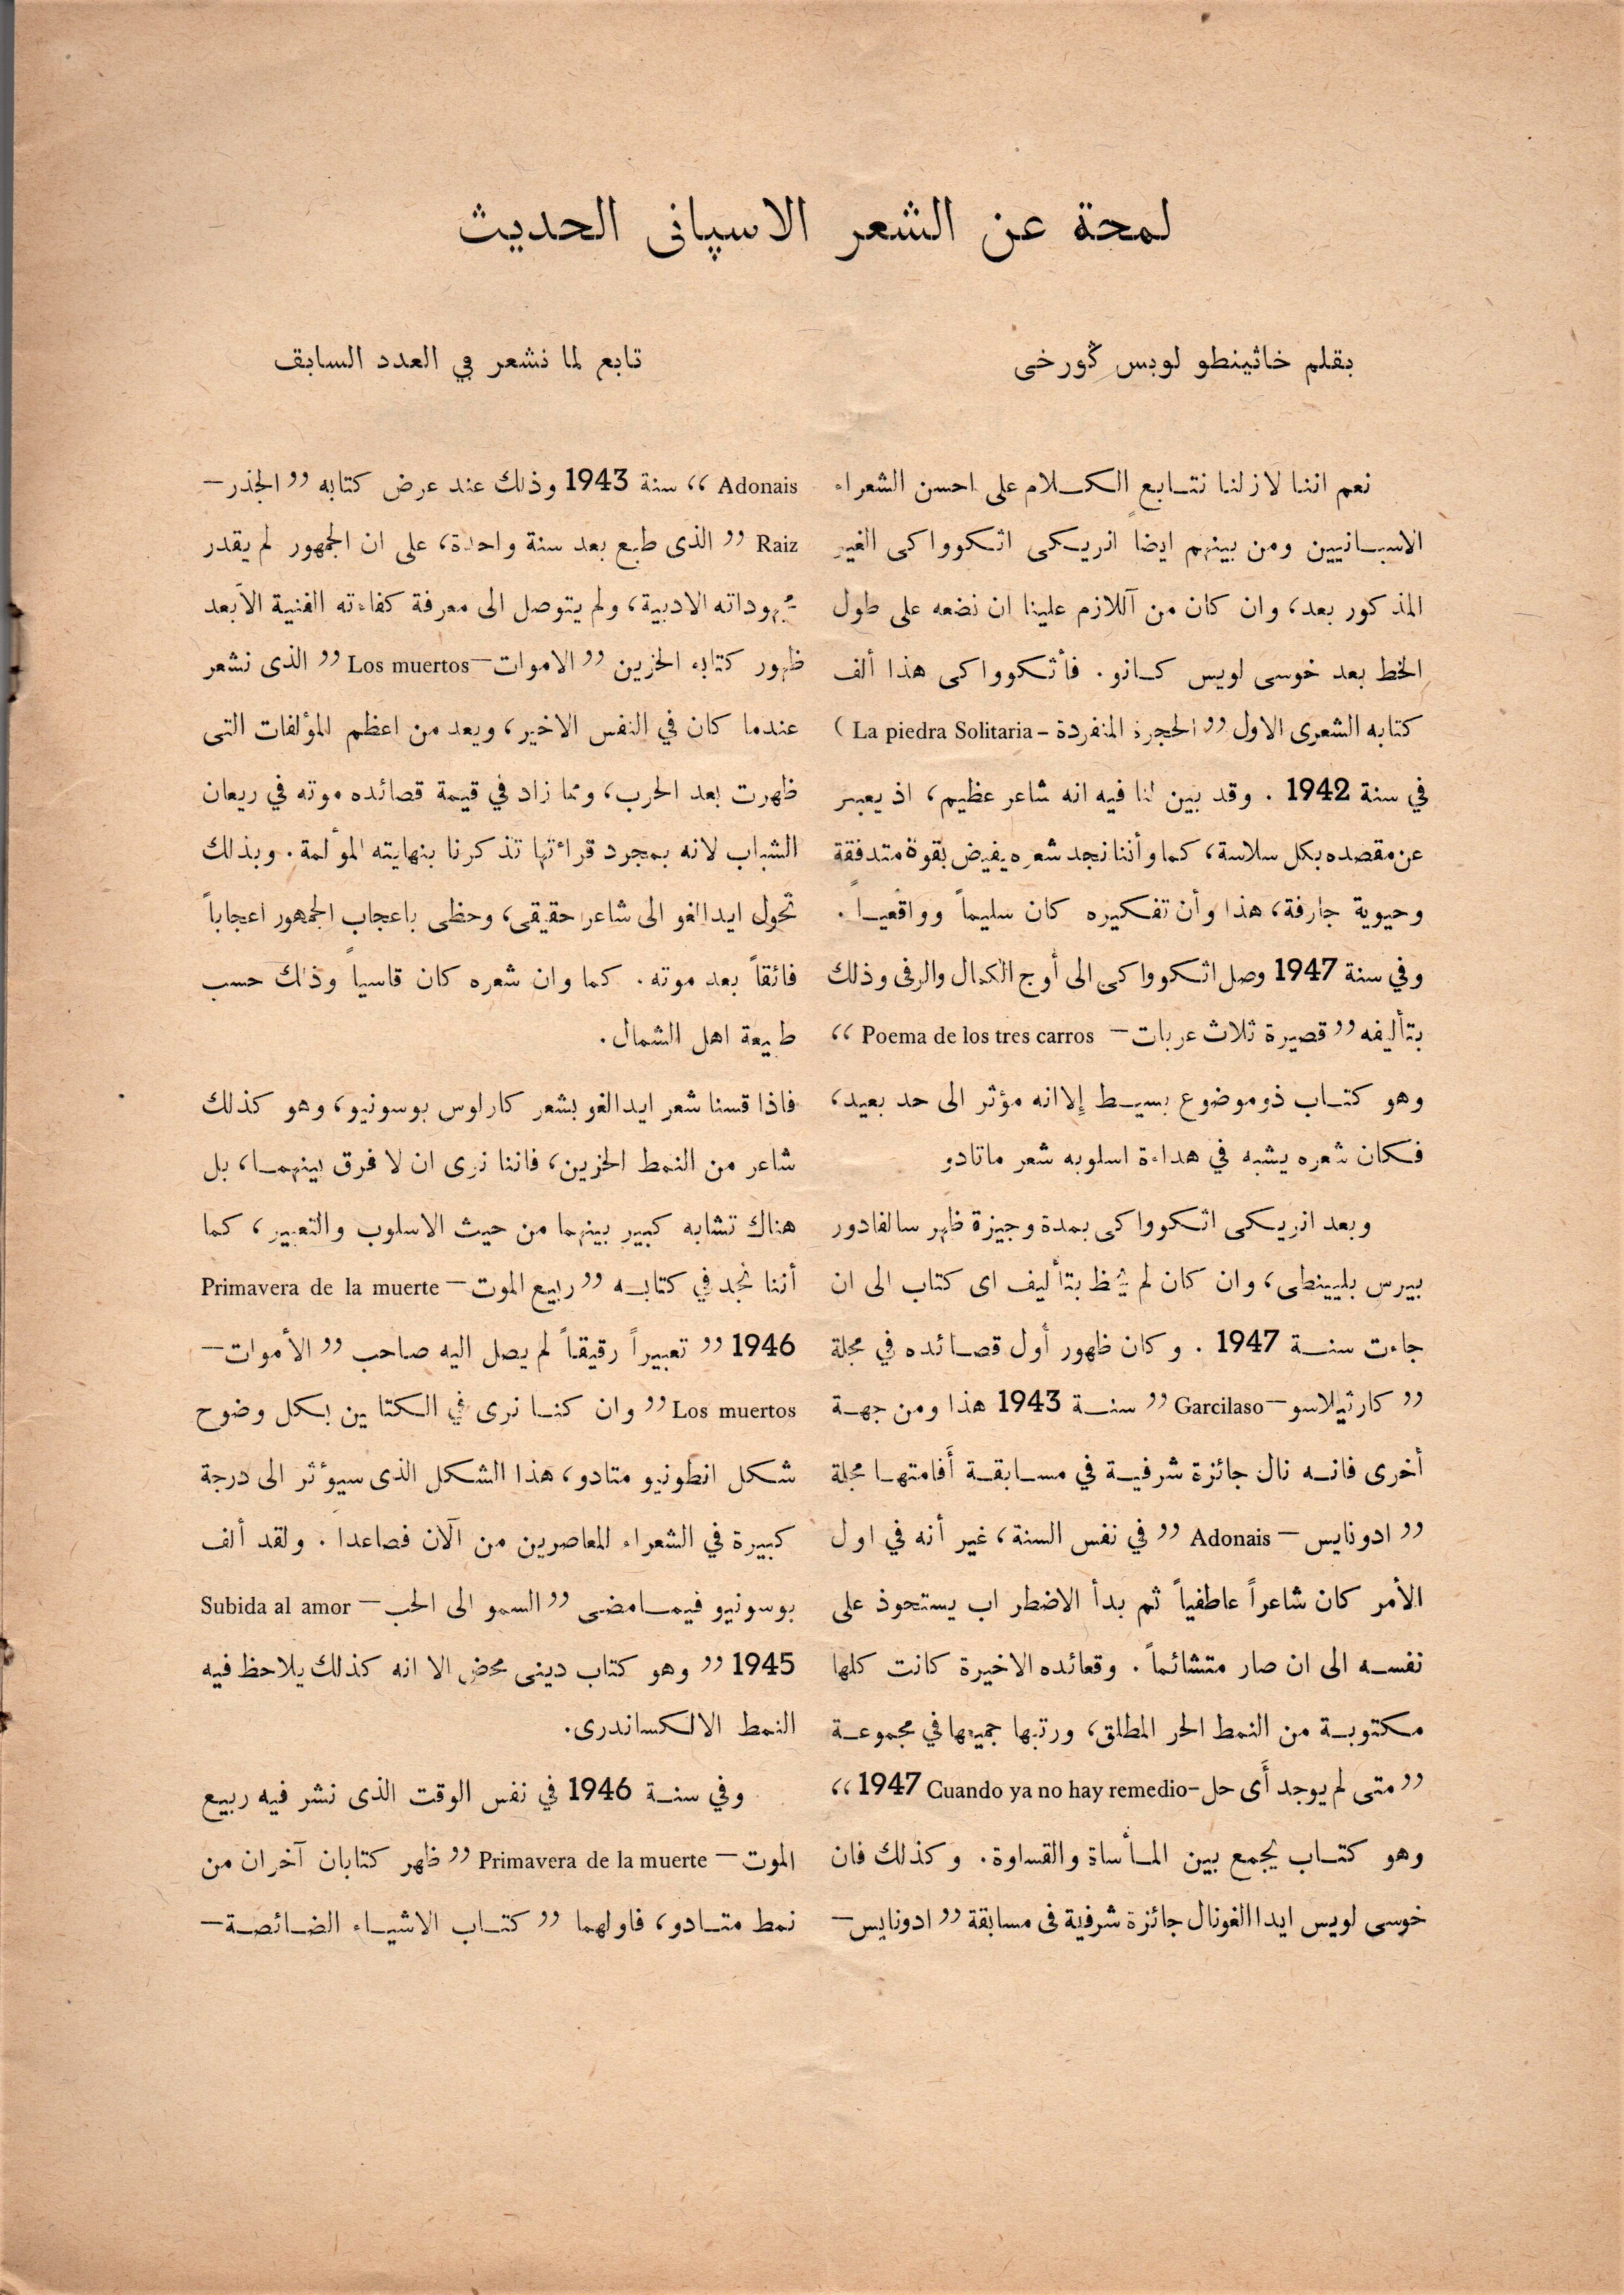 لمحة عن الشعر الاسپانى الحديث
بقلم خاثينطو لوبس ڭورخى
تابع لما نشعر في العدد السابق
نعم اننا لازلنا نتابع الكلام على احسن الشعراء
الاسبانيين ومن بينهم ايضاً انريكى اثكوواكى الغير
المذكور بعد، وان كان من آللازم علينا ان نضعه على طول
الخط بعد خوسى لويس كانو. فأثكوواكى هذا ألف
كتابه الشعرى الاول ,,الحجرة المنفردة - La piedra Solitaria)
في سنة 1942 . وقد بين لنا فيه انه شاعر عظيم، اذ يعبر
عن مقصده بكل سلاسة، كما وأننا نجد شعره يفيض بقوة متدفقة
وحيوية جارفة، هذا وأن تفكيره كان سليماً وواقعياً .
وفي سنة 1947 وصل اثكوواكى الى أوج الكمال والرفى وذلك
بتأليفه ,,قصيرة ثلاث عربات — Poema de los tres carros “
وهو كتاب ذوموضوع بسيط إلا انه مؤثر الى حد بعيد،
فكان شعره يشبه في هداءة اسلوبه شعر ماتادو
وبعد انريكى اثكوواكى بمدة وجيزة ظهر سالفادور
بيرس بليينطى، وان كان لم يحظ بتأليف اى كتاب الى ان
جاءت سنة 1947 . وكان ظهور أول قصائده في مجلة
,, كارثيلاسو — Garcilaso ,, سنة 1943 هذا ومن جهة
أخرى فانه نال جائزة شرفية في مسابقة أَفامتها مجلة
,, ادونايس — Adonais ,, في نفس السنة، غير أنه في اول
الأمر كان شاعراً عاطفياً ثم بدأ الاضطر اب يستحوذ على
نفسه الى ان صار متشائماً . وقعائده الاخيرة كانت كلها
مكتوبة من النمط الحر المطلق، ورتبها جميعها في مجموعة
,,متى لم يوجد أَى حل - Cuando ya no hay remedio 1947 “
وهو كتاب يجمع بين المأساة والقساوة. وكذلك فان
خوسى لويس ايداالغونال جائزة شرفية فى مسابقة ,,ادونايس—
Adonais “ سنة 1943 وذلك عند عرض كتابه ,,الجذر—
Raiz ,, الذى طبع بعد سنة واحدة، على ان الجمهور لم يقدر
مجهوداته الادبية، ولم يتوصل الى معرفة كفاءته الفنية الاَبعد
ظهور كتابه الحزين ,,الاموات — Los muertos ,, الذى نشعر
عندما كان في النفس الاخير، ويعد من اعظم المؤلفات التى
ظهرت بعد الحرب، ومما زاد في قيمة قصائده موته في ريعان
الشباب لانه بمجرد قراءتها تذكرنا بنهايته المؤلمة. وبذلك
تحول ايدالغو الى شاعر حقيقى، وحظى باعجاب الجمهور اعجاباً
فائقاً بعد موته. كما وان شعره كان قاسياً وذلك حسب
طبيعة اهل الشمال.
فاذا قسنا شعر ايدالغو بشعر كارلوس بوسونيو، وهو كذلك
شاعر من النمط الحزين، فاننا نرى ان لا فرق بينهما، بل
هناك تشابه كبير بينهما من حيث الاسلوب والتعبير، كما
أننا نجد في كتابه ,,ربيع الموت — Primavera de la muerte
1946 ,, تعبيراً رقيقاً لم يصل اليه صاحب ,,الأموات—
Los muertos ,, وان كنا نرى في الكتابين بكل وضوح
شكل انطونيو متادو، هذا الشكل الذى سيؤثر الى درجة
كبيرة في الشعراء المعاصرين من آلان فصاعدا . ولقد ألف
بوسونيو فيمامضى ,,السمو الى الحب — Subida al amor
1945 ,, وهو كتاب دينى محض الا انه كذلك يلاحظ فيه
النمط الالكساندرى.
وفي سنة 1946 في نفس الوقت الذى نشر فيه ربيع
الموت — Primavera de la muerte ,, ظهر كتابان آخران من
نمط متادو، فاولهما ,,كتاب الاشياء الضائصة—